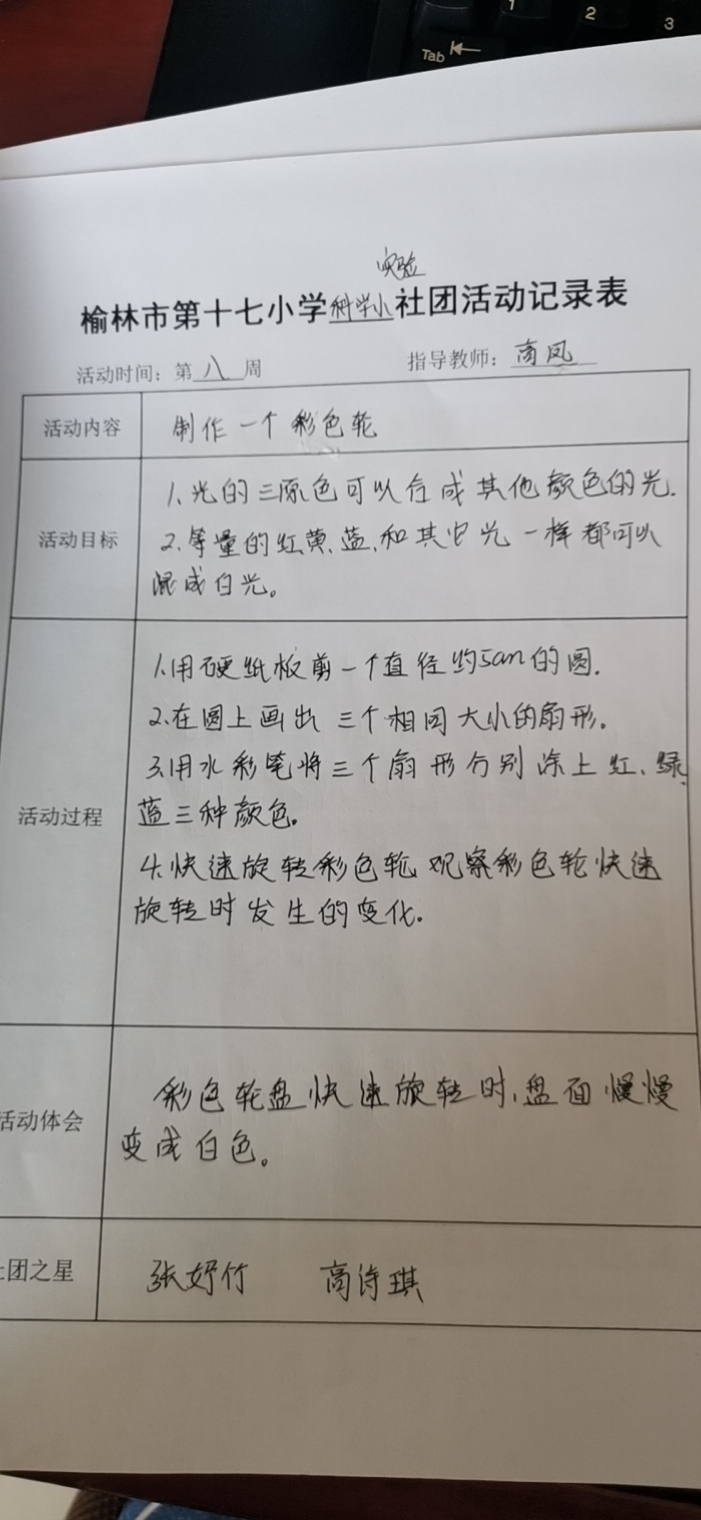 Tab
1
2
3
实验
榆林市第十七小学科学小社团活动记录表
活动时间：第八周 指导教师：商凤
活动内容 制作一个彩色轮
活动目标
1.光的三原色可以合成其他颜色的光.
2.等量的红黄、蓝、和其它光一样都可以
混成白光。
活动过程
1.用硬纸板剪一个直径约5cm的圆.
2.在圆上画出三个相同大小的扇形.
3.用水彩笔将三个扇形分别涂上红、绿、
蓝三种颜色.
4.快速旋转彩色轮,观察彩色轮快速
旋转时发生的变化.
活动体会
彩色轮盘快速旋转时,盘面慢慢
变成白色。
社团之星 张妤竹 高诗琪